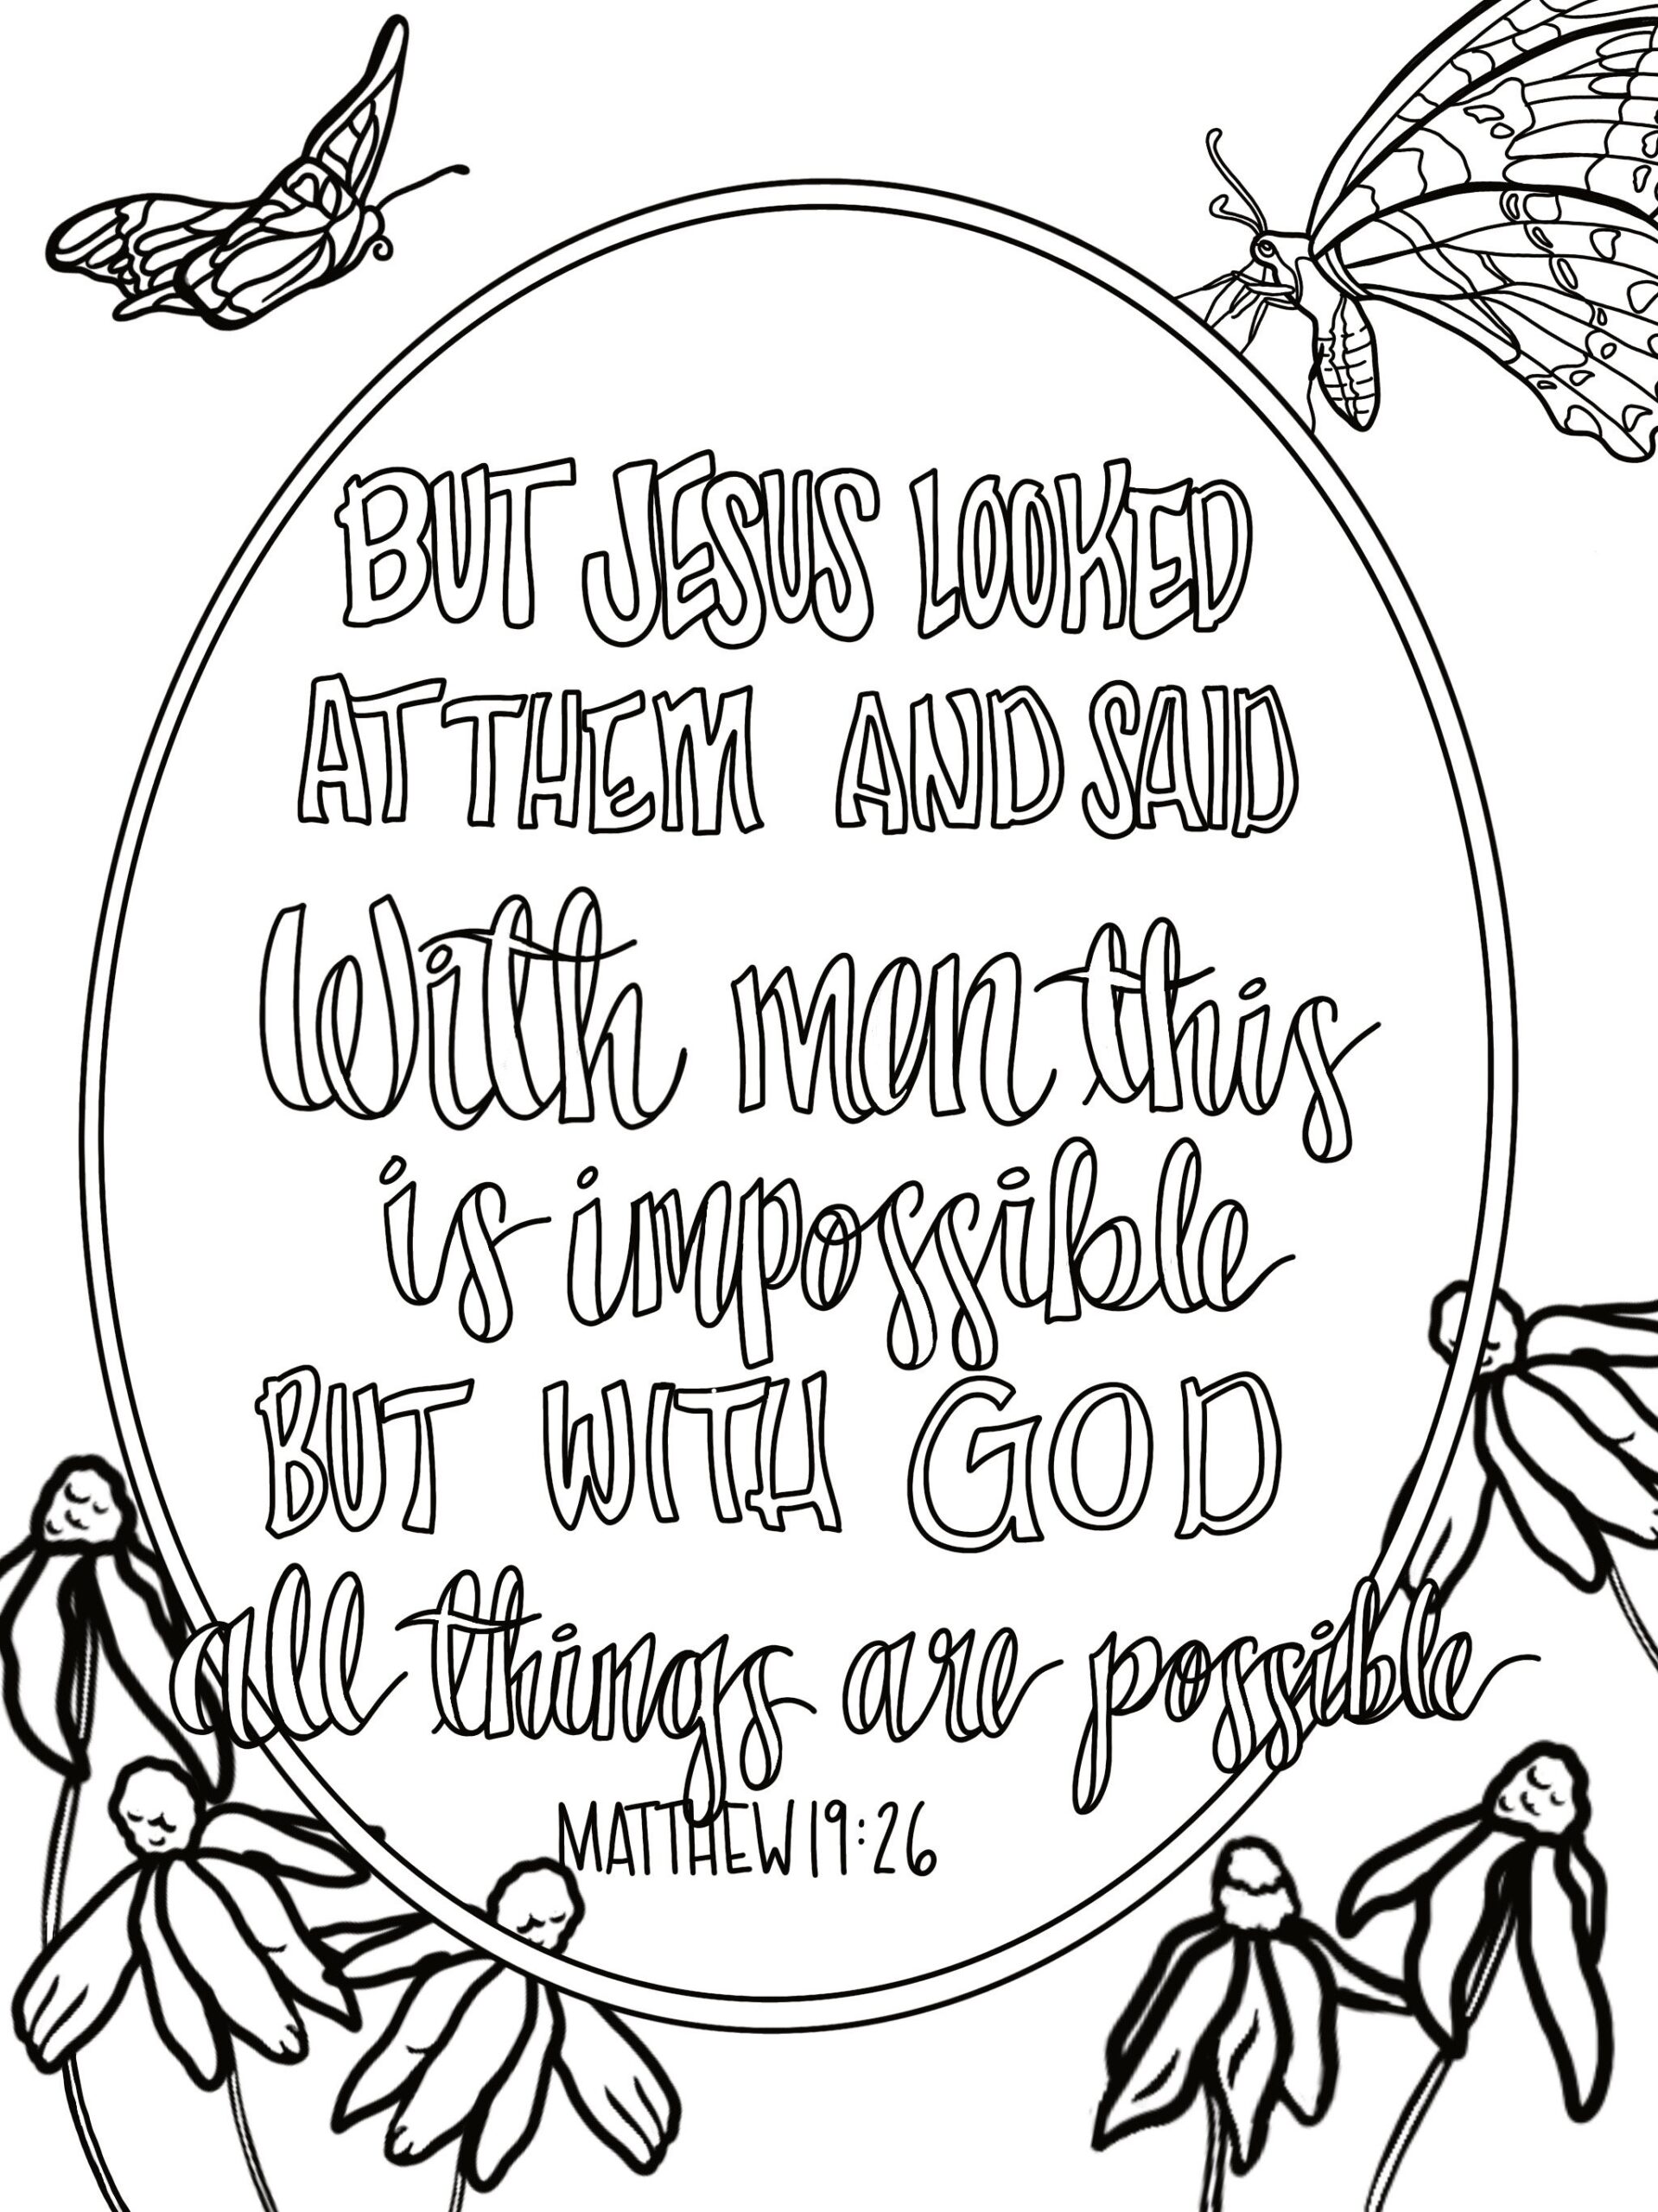 BUT JESUS LOOKED
AT THEM AND SAID
With man this
is impossible
BUT WITH GOD
all things are possible
MATTHEW 19:26